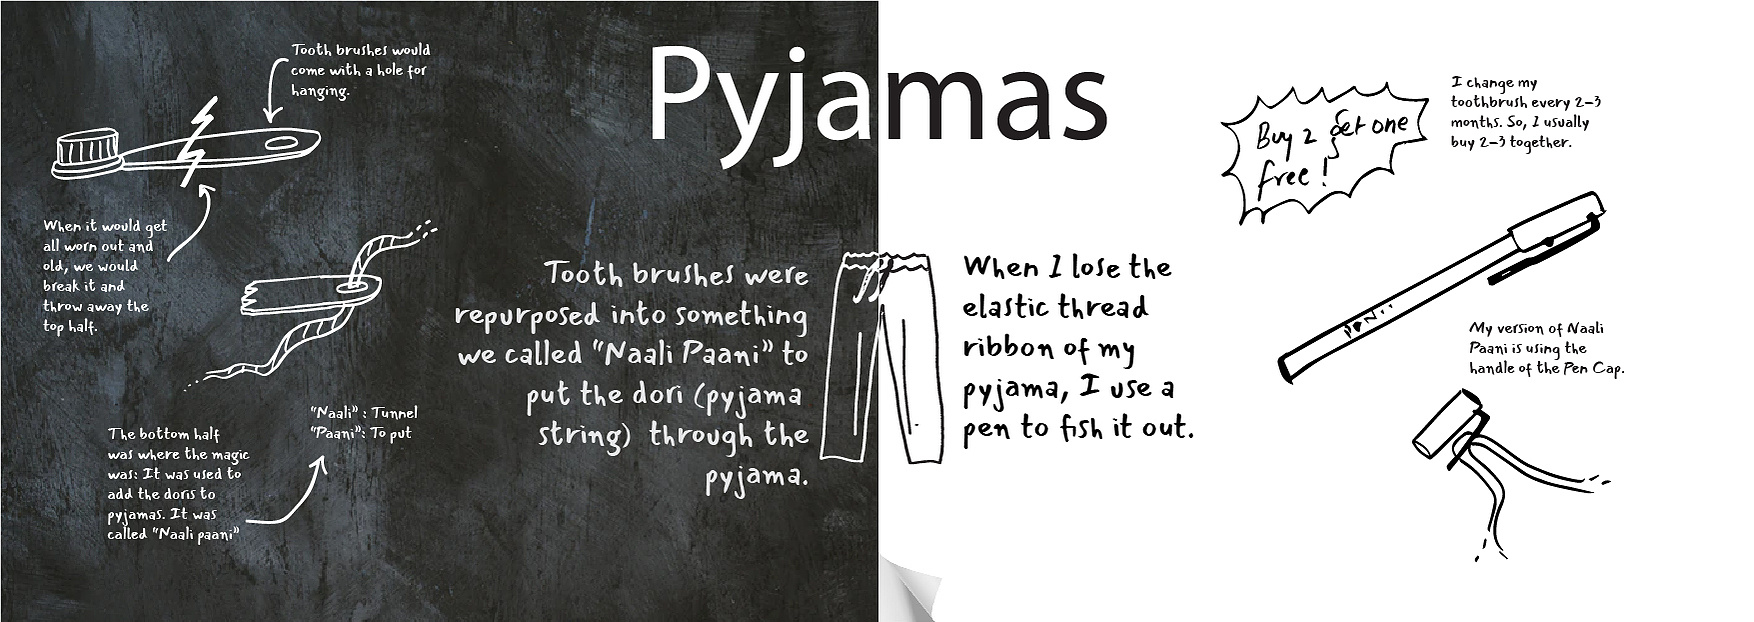 Pyjamas
Tooth brushes would
come with a hole for
hanging.
When it would get
all worn out and
old, we would
break it and
throw away the
top half.
"Naali" : Tunnel
"Paani": To put
The bottom half
was where the magic
was: It was used to
add the doris to
pyjamas. It was
called "Naali paani"
Tooth brushes were
repurposed into something
we called "Naali Paani" to
put the dori (pyjama
string) through the
pyjama.
When I lose the
elastic thread
ribbon of my
pyjama, I use a
pen to fish it out.
Buy 2 Get one
free!
I change my
toothbrush every 2-3
months. So, I usually
buy 2-3 together.
My version of Naali
Paani is using the
handle of the Pen Cap.